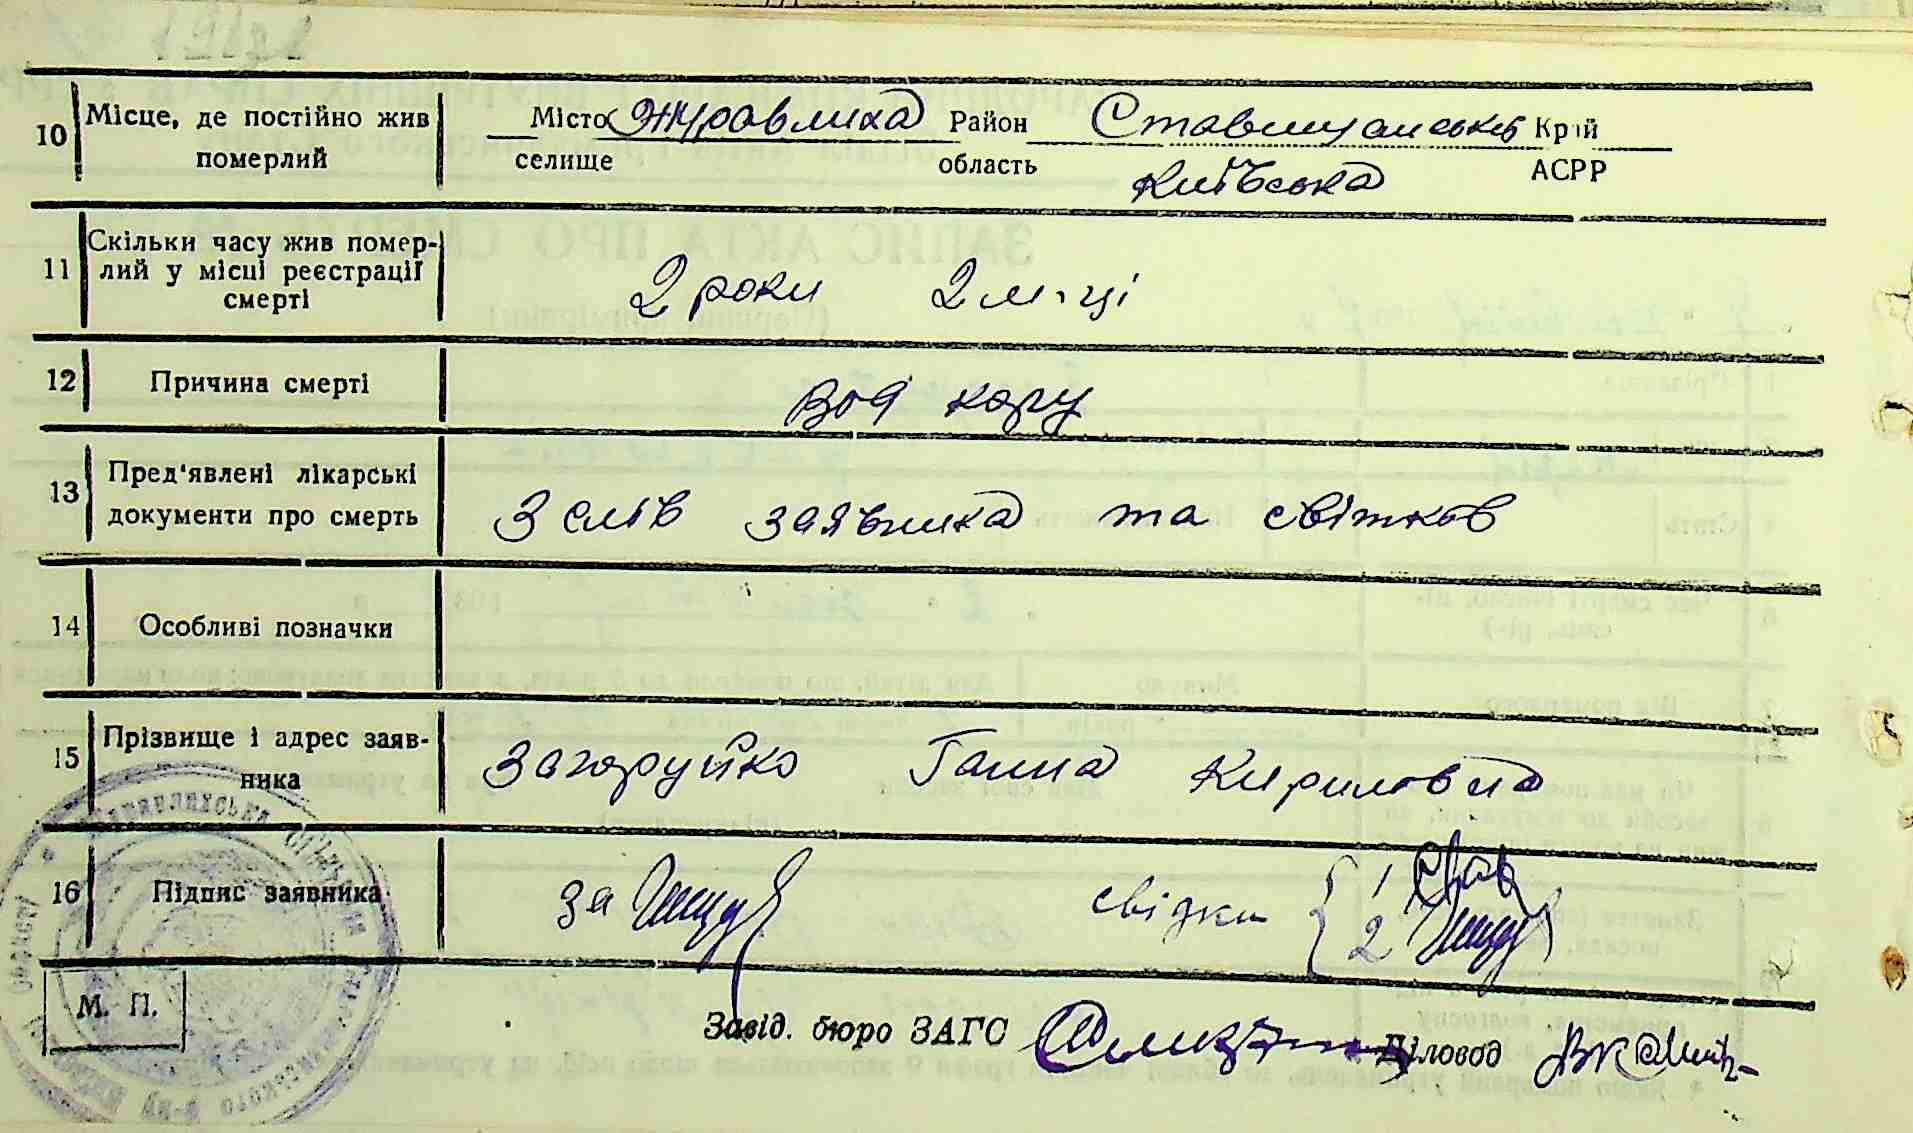 10 Місце, де постійно жив померлий
Місто Журавлиха Район Ставищанський Край
селище область Київська АСРР
11 Скільки часу жив помер-
лий у місці реєстрації
смерті
2 роки 2 м-ці
12 Причина смерті
Від кору
13 Пред'явлені лікарські
документи про смерть
З слів заявника та світков
14 Особливі позначки
15 Прізвище і адрес заяв-
ника
Загоруйко Ганна Кириловна
16 Підпис заявника
за
свідки 1
2
М. П.
Завід. бюро ЗАГС
Діловод